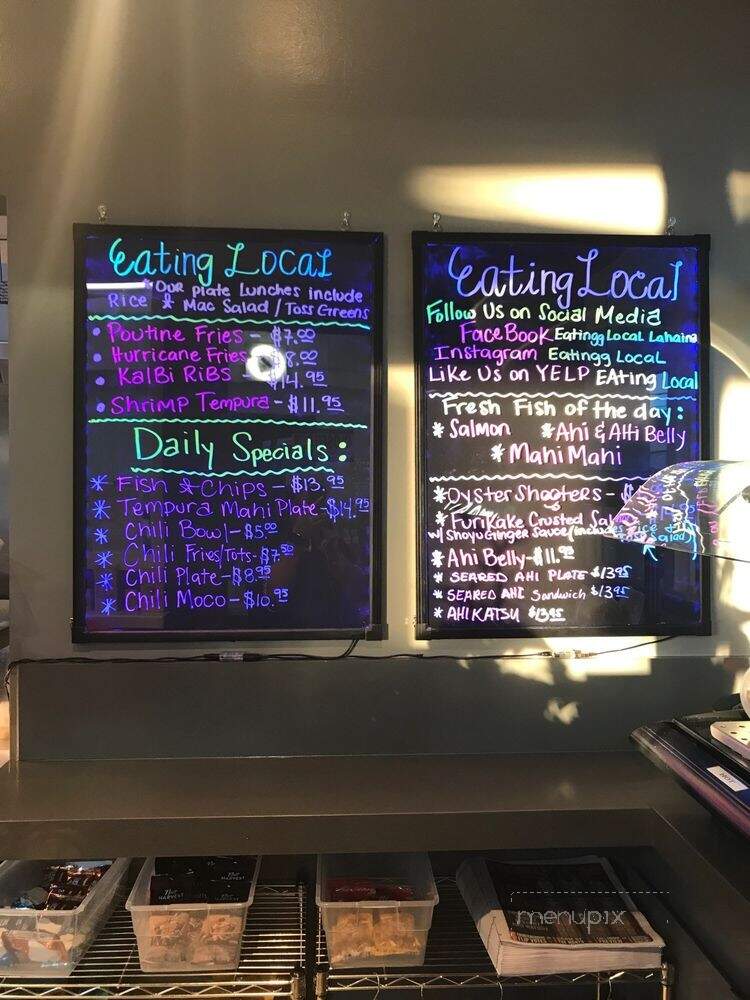 Eating Local
*Our plate Lunches include
Rice & Mac Salad / Toss Greens
• Poutine Fries - $7.00
• Hurricane Fries 8.00
• KalBi RiBS - 14.95
• Shrimp Tempura - $11.95
Daily Specials:
* Fish & Chips - $13.95
* Tempura Mahi Plate - $14.95
* Chili Bowl - $5.00
* Chili Fries/Tots - $7.50
* Chili Plate - $8.95
* Chili Moco - $10.95
Eating Local
Follow Us on Social Media
FaceBook Eatingg Local Lahaina
Instagram Eatingg Local
Like Us on YELP EAting Local
Fresh Fish of the day:
* Salmon *Ahi & AHi Belly
* Mahi Mahi
* Oyster Shooters - $
* Furikake Crusted
w/ Shoyu Ginger Sauce
* Ahi Belly - $11.95
* SEARED AHI PLATE $13.95
* SEARED AHI Sandwich $13.95
* AHI KATSU $13.95
HOT
menupix